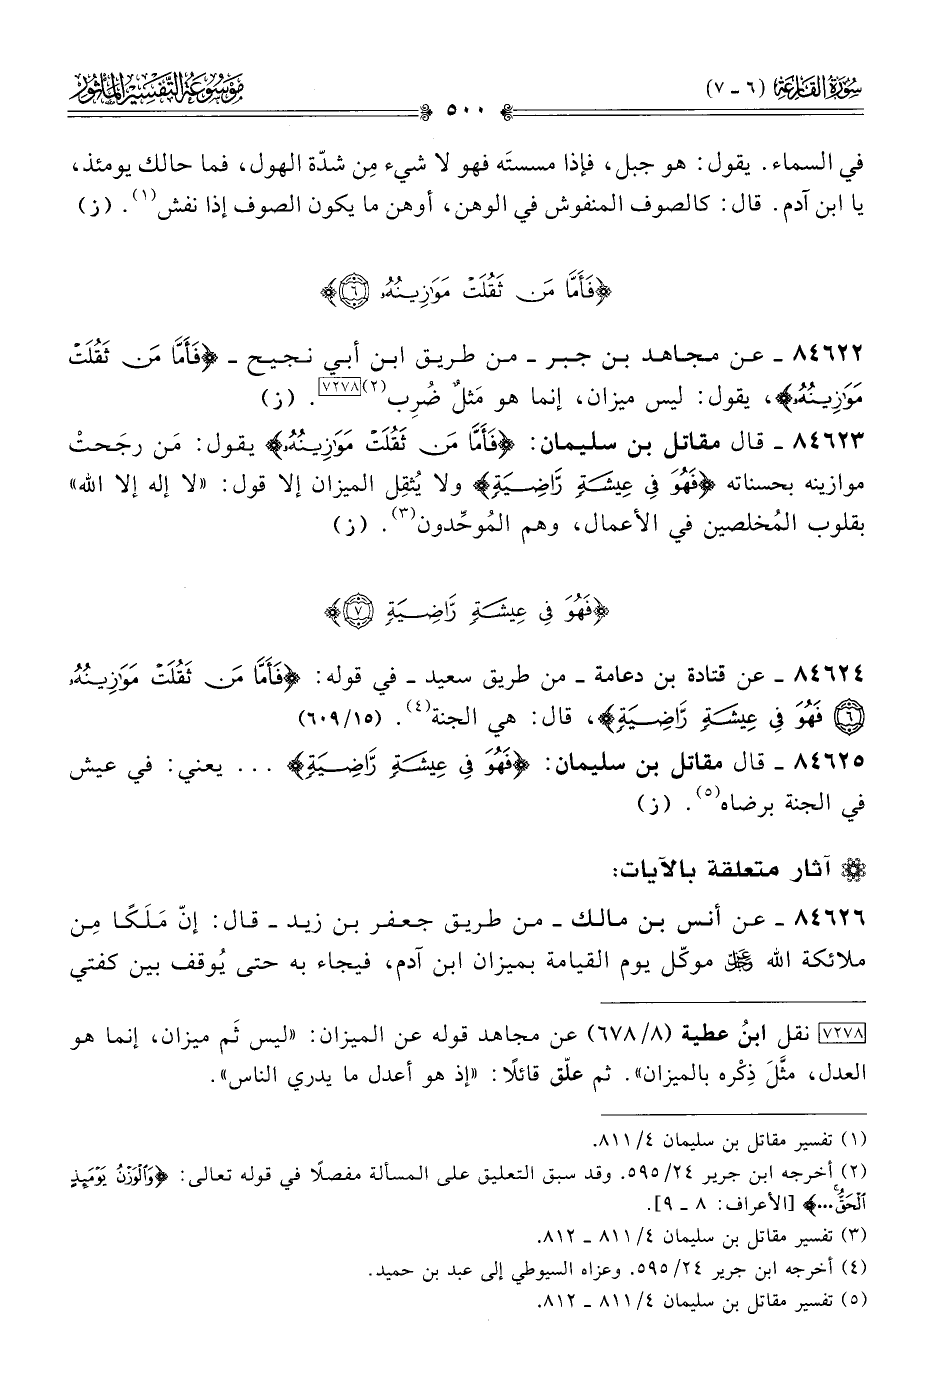 سُورَةُ القَارِعَة (٦ - ٧)
٥٠٠
مَوْسُوعَةُ التَّفْسِيرِ المَأْثُور
في السماء. يقول: هو جبل، فإذا مسستَه فهو لا شيء مِن شدّة الهول، فما حالك يومئذ،
يا ابن آدم. قال: كالصوف المنفوش في الوهن، أوهن ما يكون الصوف إذا نفش(١). (ز)
﴿فَأَمَّا مَن ثَقُلَتْ مَوَازِينُهُۥ ٦﴾
٨٤٦٢٢ ـ عن مجاهد بن جبر ـ من طريق ابن أبي نجيح ـ ﴿فَأَمَّا مَن ثَقُلَتْ
مَوَازِينُهُۥ﴾، يقول: ليس ميزان، إنما هو مَثلٌ ضُرِب(٢)[٧٢٧٨]. (ز)
٨٤٦٢٣ ـ قال مقاتل بن سليمان: ﴿فَأَمَّا مَن ثَقُلَتْ مَوَازِينُهُۥ﴾ يقول: مَن رجَحتْ
موازينه بحسناته ﴿فَهُوَ فِي عِيشَةٍ رَّاضِيَةٍ﴾ ولا يُثقِل الميزان إلا قول: «لا إله إلا الله»
بقلوب المُخلصين في الأعمال، وهم المُوحِّدون(٣). (ز)
﴿فَهُوَ فِي عِيشَةٍ رَّاضِيَةٍ ٧﴾
٨٤٦٢٤ ـ عن قتادة بن دعامة ـ من طريق سعيد ـ في قوله: ﴿فَأَمَّا مَن ثَقُلَتْ مَوَازِينُهُۥ
٦ فَهُوَ فِي عِيشَةٍ رَّاضِيَةٍ﴾، قال: هي الجنة(٤). (١٥/٦٠٩)
٨٤٦٢٥ ـ قال مقاتل بن سليمان: ﴿فَهُوَ فِي عِيشَةٍ رَّاضِيَةٍ﴾ ... يعني: في عيش
في الجنة برضاه(٥). (ز)
آثار متعلقة بالآيات:
٨٤٦٢٦ ـ عن أنس بن مالك ـ من طريق جعفر بن زيد ـ قال: إنّ مَلَكًا مِن
ملائكة الله ﷿ موكّل يوم القيامة بميزان ابن آدم، فيجاء به حتى يُوقف بين كفتي
[٧٢٧٨] نقل ابنُ عطية (٨/٦٧٨) عن مجاهد قوله عن الميزان: «ليس ثَم ميزان، إنما هو
العدل، مثَّلَ ذِكْره بالميزان». ثم علّق قائلًا: «إذ هو أعدل ما يدري الناس».
(١) تفسير مقاتل بن سليمان ٤/٨١١.
(٢) أخرجه ابن جرير ٢٤/٥٩٥. وقد سبق التعليق على المسألة مفصلًا في قوله تعالى: ﴿وَالْوَزْنُ يَوْمَئِذٍ
الْحَقُّ...﴾ [الأعراف: ٨ ـ ٩].
(٣) تفسير مقاتل بن سليمان ٤/٨١١ ـ ٨١٢.
(٤) أخرجه ابن جرير ٢٤/٥٩٥. وعزاه السيوطي إلى عبد بن حميد.
(٥) تفسير مقاتل بن سليمان ٤/٨١١ ـ ٨١٢.